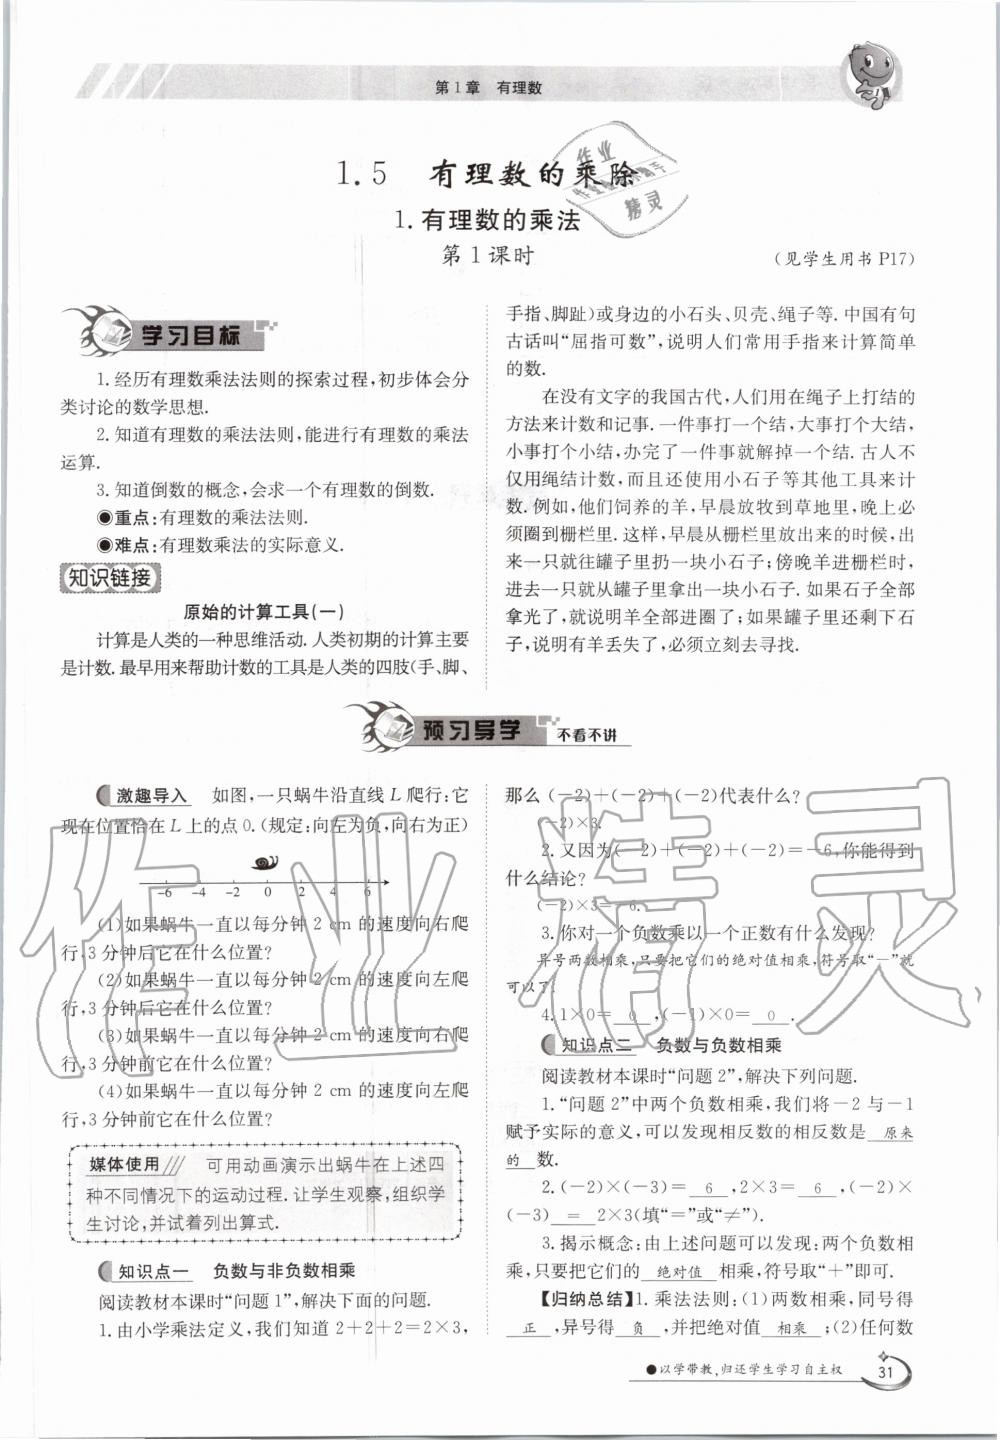 第1章 有理数
1.5 有理数的乘除
1.有理数的乘法
第1课时
(见学生用书 P17)
学习目标
1.经历有理数乘法法则的探索过程,初步体会分
类讨论的数学思想.
2.知道有理数的乘法法则,能进行有理数的乘法
运算.
3.知道倒数的概念,会求一个有理数的倒数.
●重点:有理数的乘法法则.
●难点:有理数乘法的实际意义.
知识链接
原始的计算工具(一)
计算是人类的一种思维活动.人类初期的计算主要
是计数.最早用来帮助计数的工具是人类的四肢(手、脚、
手指、脚趾)或身边的小石头、贝壳、绳子等.中国有句
古话叫“屈指可数”,说明人们常用手指来计算简单
的数.
在没有文字的我国古代,人们用在绳子上打结的
方法来计数和记事.一件事打一个结,大事打个大结,
小事打个小结,办完了一件事就解掉一个结.古人不
仅用绳结计数,而且还使用小石子等其他工具来计
数.例如,他们饲养的羊,早晨放牧到草地里,晚上必
须圈到栅栏里.这样,早晨从栅栏里放出来的时候,出
来一只就往罐子里扔一块小石子;傍晚羊进栅栏时,
进去一只就从罐子里拿出一块小石子.如果石子全部
拿光了,就说明羊全部进圈了;如果罐子里还剩下石
子,说明有羊丢失了,必须立刻去寻找.
预习导学 不看不讲
激趣导入 如图,一只蜗牛沿直线 L 爬行:它
现在位置恰在 L 上的点 0.(规定:向左为负,向右为正)
-6 -4 -2 0 2 4 6
(1)如果蜗牛一直以每分钟 2 cm 的速度向右爬
行,3分钟后它在什么位置?
(2)如果蜗牛一直以每分钟 2 cm 的速度向左爬
行,3分钟后它在什么位置?
(3)如果蜗牛一直以每分钟 2 cm 的速度向右爬
行,3分钟前它在什么位置?
(4)如果蜗牛一直以每分钟 2 cm 的速度向左爬
行,3分钟前它在什么位置?
媒体使用 可用动画演示出蜗牛在上述四
种不同情况下的运动过程.让学生观察,组织学
生讨论,并试着列出算式.
知识点一 负数与非负数相乘
阅读教材本课时“问题1”,解决下面的问题.
1.由小学乘法定义,我们知道 2+2+2=2×3,
那么(-2)+(-2)+(-2)代表什么?
(-2)×3.
2.又因为(-2)+(-2)+(-2)=-6,你能得到
什么结论?
(-2)×3=-6.
3.你对一个负数乘以一个正数有什么发现?
异号两数相乘,只要把它们的绝对值相乘,符号取“-”就
可以了.
4.1×0= 0 ,(-1)×0= 0 .
知识点二 负数与负数相乘
阅读教材本课时“问题2”,解决下列问题.
1.“问题2”中两个负数相乘,我们将-2与-1
赋予实际的意义,可以发现相反数的相反数是 原来
的 数.
2.(-2)×(-3)= 6 ,2×3= 6 ,(-2)×
(-3) = 2×3(填“=”或“≠”).
3.揭示概念:由上述问题可以发现:两个负数相
乘,只要把它们的 绝对值 相乘,符号取“+”即可.
【归纳总结】1.乘法法则:(1)两数相乘,同号得
正 ,异号得 负 ,并把绝对值 相乘 ;(2)任何数
●以学带教,归还学生学习自主权
31
作业
精灵
作业精灵